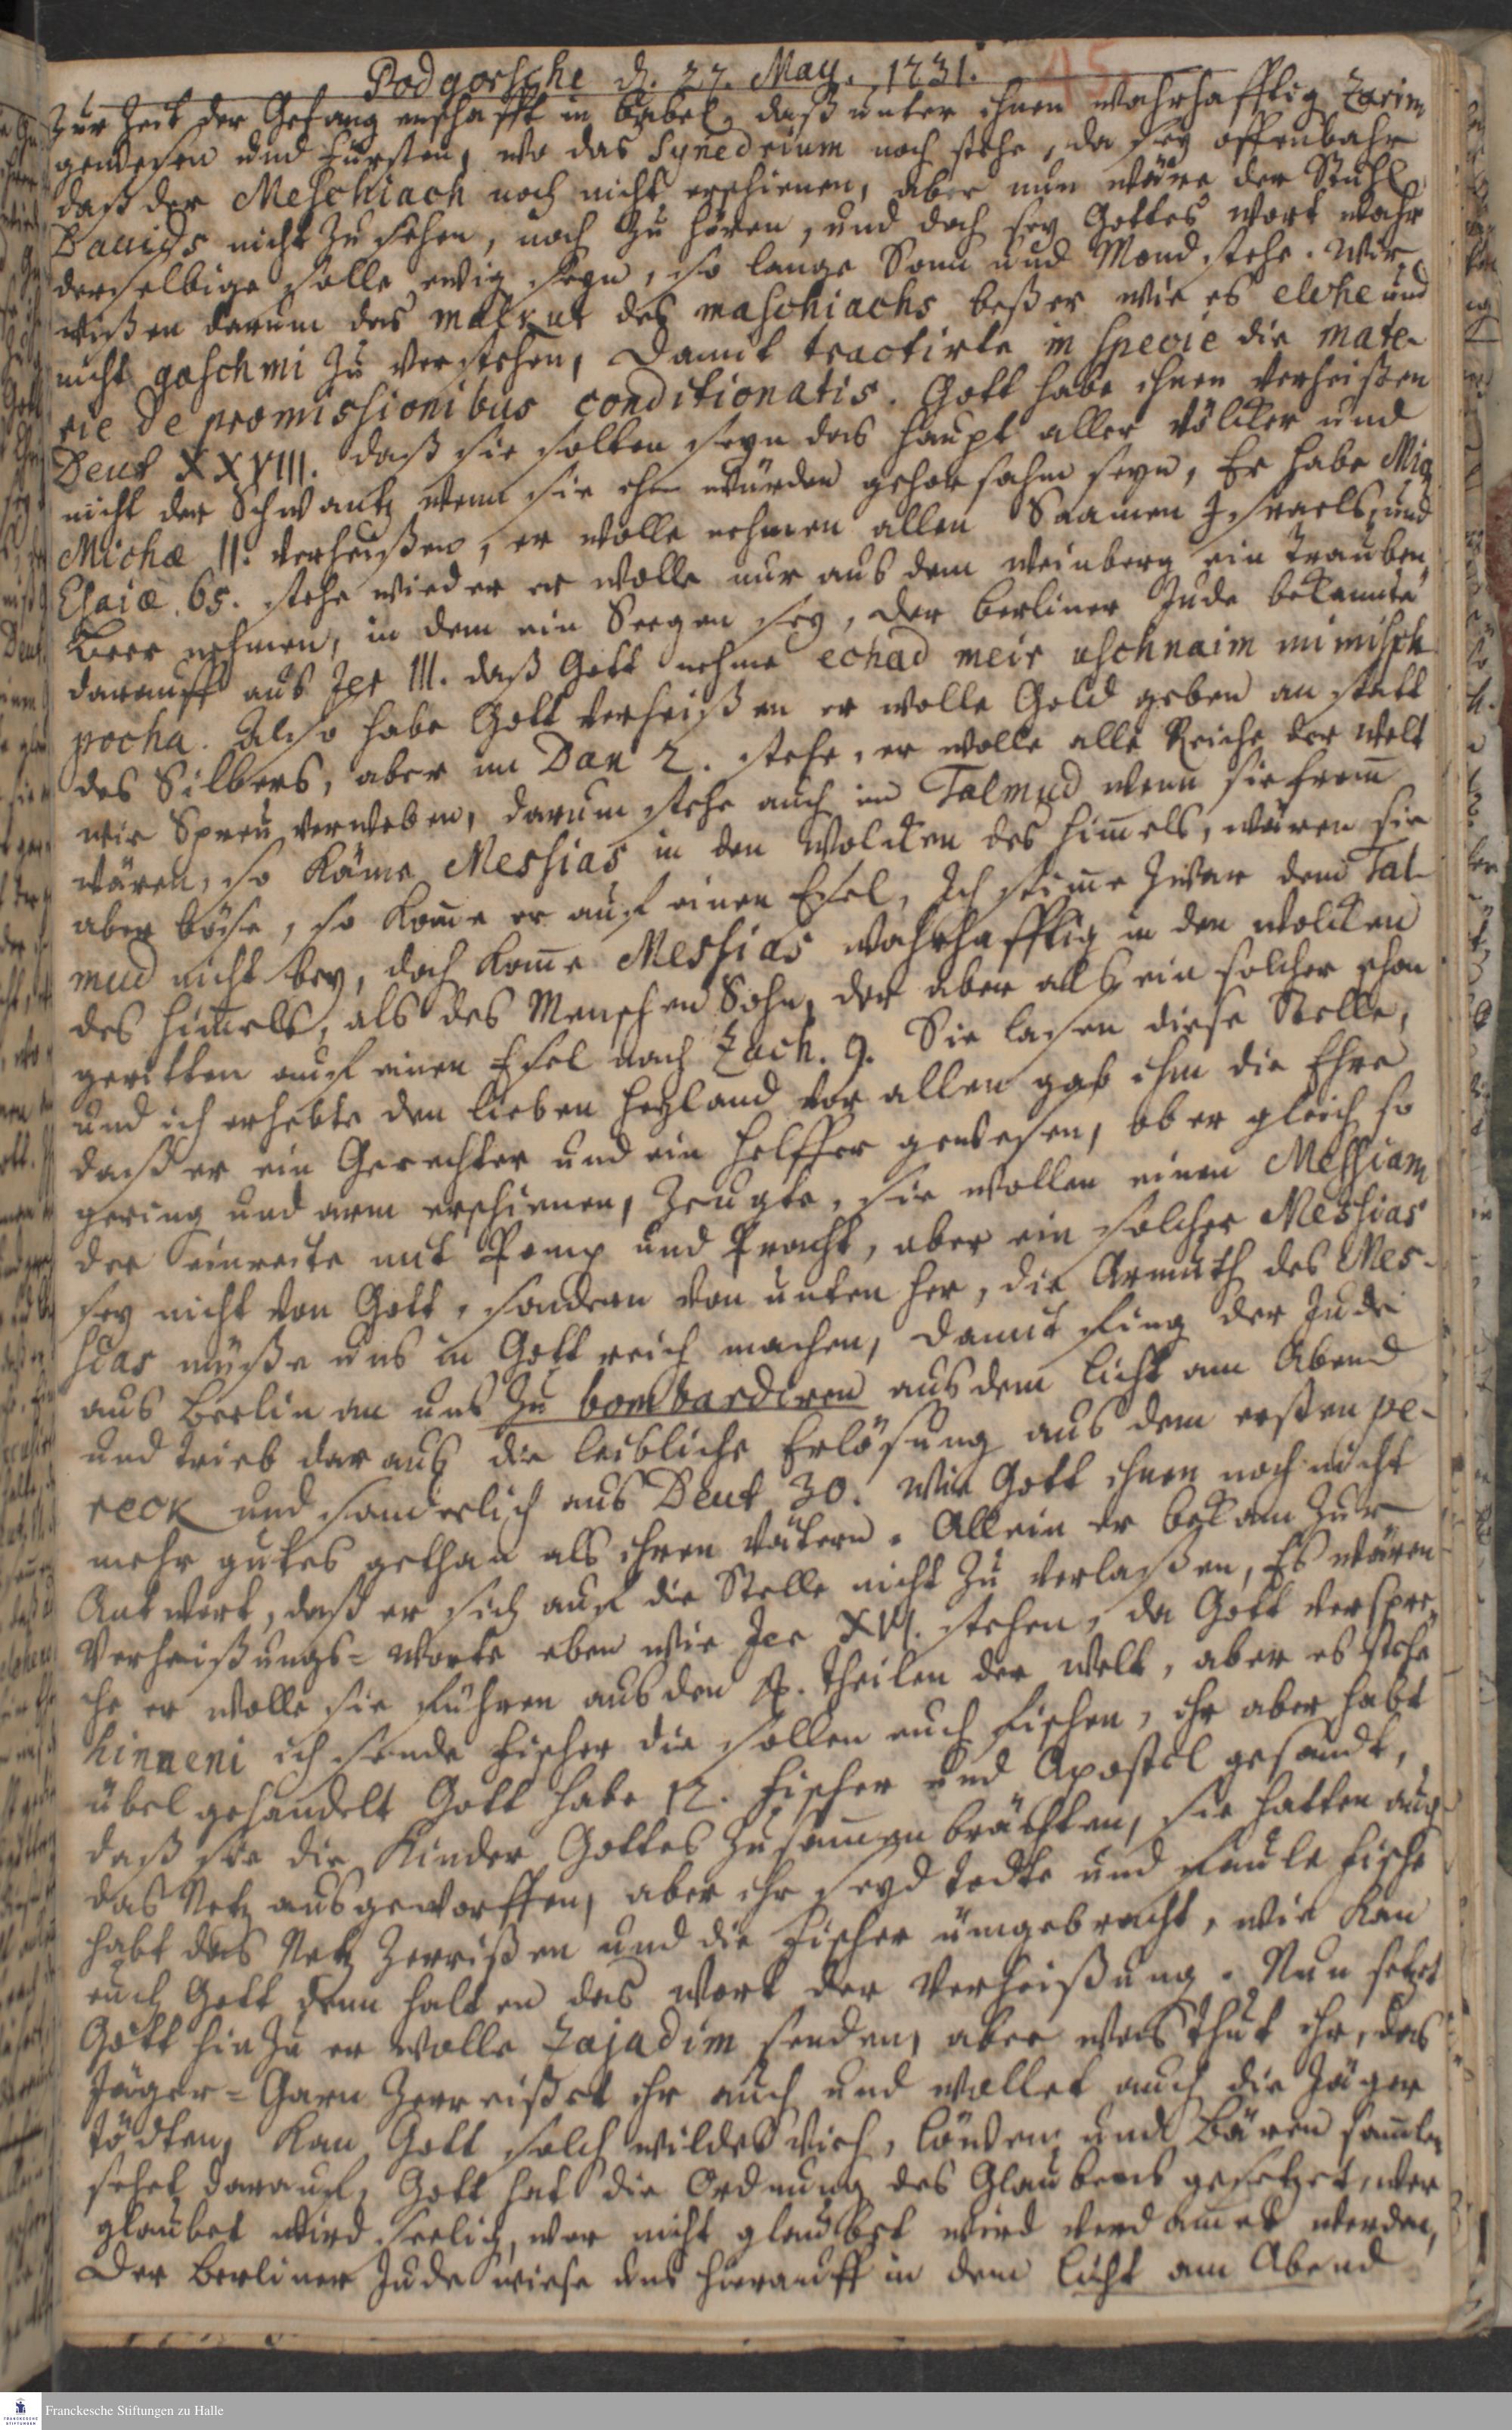 Podgorsche d. 27. May. 1731.
45
Zur Zeit der Gefangenschafft in Babel, daß unter ihnen wahrhafftig Zarim
gewesen und Fürsten, wo das Synedrium noch stehe, da sey offenbahr
daß der Meschiach noch nicht erschienen, aber nun wäre der Stuhl
Davids nicht zu sehen, noch zu hören, und doch sey Gottes wort wahr
derselbige solle ewig seyn, so lange Sonn und Mond stehe. Wir
wißen darum das malkut des maschiachs beßer wie es elohe und
nicht gaschmi zu verstehen, Damit tractirte in specie die mate-
rie de promissionibus conditionatis. Gott habe ihnen verheißen
Deut XXVIII. daß sie solten seyn das Haupt aller völcker und
nicht der Schwantz wenn sie ihm würden gehorsahm seyn, Er habe Mig
Michæ II. verheißen, er wolle nehmen allen Saamen Israels, und
Esaiæ 65. stehe wieder er wolle nur aus dem weinberg ein Trauben
Beer nehmen, in dem ein Seegen sey, der berliner Jude bekannte
darauff aus Jer III. daß Gott nehme echad meir uschnaim mimisch
pocha. Also habe Gott verheißen er wolle Gold geben an statt
des Silbers, aber im Dan 2. stehe, er wolle alle Reiche der welt
wie Spreu verweben, darum stehe auch im Talmud wenn sie from
wären, so käme Messias in den Wolcken des Himels, wären sie
aber böse, so kome er auf einen Esel, Ich stime zwar dem Tal-
mud nicht bey, doch kome Messias wahrhafftig in den wolcken
des Himels, als des Menschen Sohn, der aber als ein solcher schon
geritten auf einen Esel nach Zach. 9. Sie lasen diese Stelle,
und ich erhebte den lieben Heyland vor allen gab ihm die Ehre
daß er ein Gerechter und ein Helffer gewesen, ob er gleich so
gering und arm erschienen, Zeugte, sie wollen einen Messiam
der einreite mit Pomp und Pracht, aber ein solcher Messias
sey nicht von Gott, sondern von unten her, die Armuth des Mes-
sias müße uns in Gott reich machen, damit fing der Jude
aus Berlin an uns zu bombardiren aus dem licht am Abend
und trieb daraus die leibliche Erlösung aus dem ersten pe-
reck und sonderlich aus Deut 30. wie Gott ihnen noch nicht
mehr gutes gethan als ihren vätern. Allein er bekam zur
Antwort, daß er sich auf die Stelle nicht zu verlaßen, Es wären
Verheißungs-worte eben wie Jer XVI. stehen, da Gott verspre
che er wolle sie führen aus den 4. theilen der welt, aber es stehe
hinneni ich sende Fischer die sollen euch fischen, ihr aber habt
übel gehandelt Gott habe 12. Fischer und Apostel gesandt,
daß sie die Kinder Gottes zusamen brächten, sie hatten auch
das Netz ausgeworffen, aber ihr seyd todte und faule Fische
habt das Netz zerrißen und die Fischer ümgebracht, wie kan
euch Gott denn halten das wort der Verheißung. Nun setzet
Gott hinzu er wolle Zajadim senden, aber was thut ihr, das
Jäger-Garn zerreißet ihr auch und wollet auch die Jäger
tödten, kan Gott solch wildes vieh, löwen und Bären samlen
sehet darauf, Gott hat die Ordnung des Glaubens gesetzet, wer
glaubet wird seelig, wer nicht glaubet wird verdamet werden,
Der berliner Jude wiese uns hierauff in dem licht am Abend
Franckesche Stiftungen zu Halle